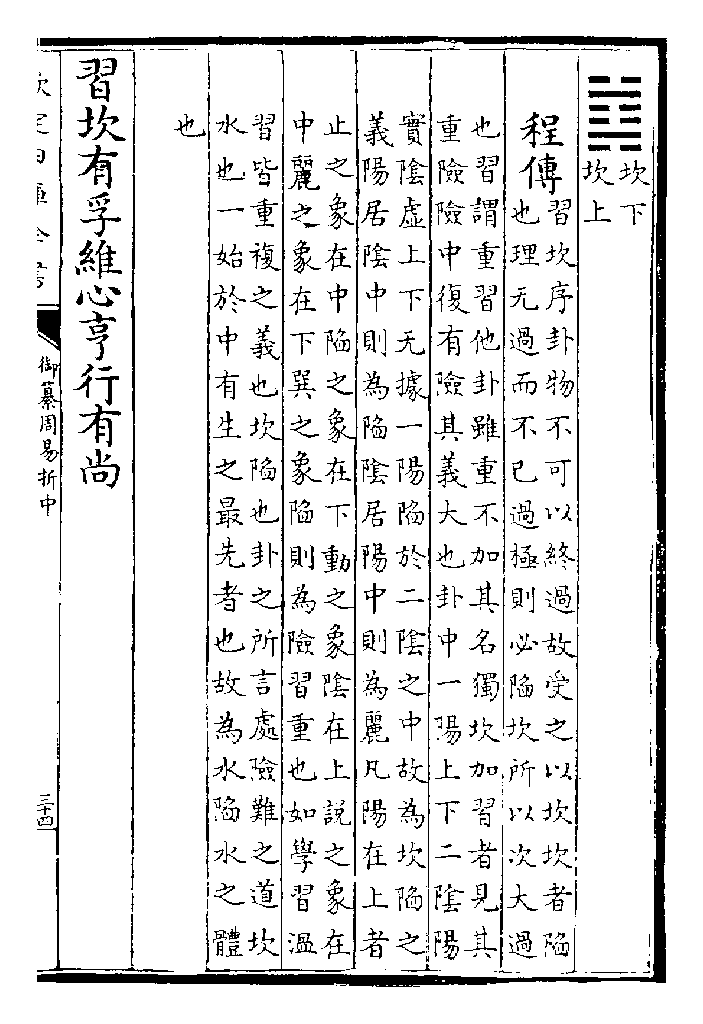 ䷜
坎下
坎上
程傳
習坎序卦物不可以終過故受之以坎坎者陷
也理无過而不已過極則必陷坎所以次大過
也習謂重習他卦雖重不加其名獨坎加習者見其
重險險中復有險其義大也卦中一陽上下二陰陽
實陰虛上下无據一陽陷於二陰之中故為坎陷之
義陽居陰中則為陷陰居陽中則為麗凡陽在上者
止之象在中陷之象在下動之象陰在上說之象在
中麗之象在下巽之象陷則為險習重也如學習溫
習皆重複之義也坎陷也卦之所言處險難之道坎
水也一始於中有生之最先者也故為水陷水之體
也
習坎有孚維心亨行有尚
欽定四庫全書
御纂周易折中
三十四